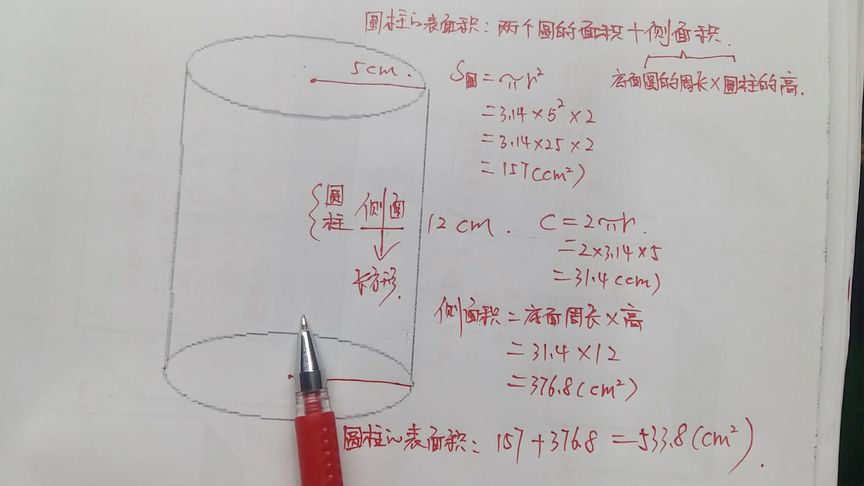 圆柱的表面积：两个圆的面积＋侧面积.
底面圆的周长×圆柱的高.
5cm.
S圆=πr²
=3.14×5²×2
=3.14×25×2
=157(cm²)
圆柱
侧面
长方形.
12cm.
C=2πr.
=2×3.14×5
=31.4(cm)
侧面积=底面周长×高
=31.4×12
=376.8(cm²)
圆柱的表面积：157+376.8=533.8(cm²).